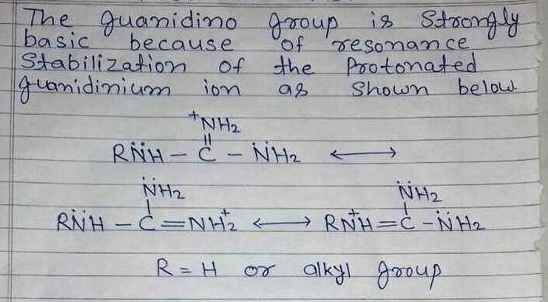 The guanidino group is strongly
basic because of resonance
Stabilization of the Protonated
guanidinium ion as shown below.
⁺NH₂
||
RN̈H – C – N̈H₂ ⟷
N̈H₂
|
RN̈H – C = NH₂⁺ ⟷ RN⁺H = C – N̈H₂
N̈H₂
|
R = H or alkyl group